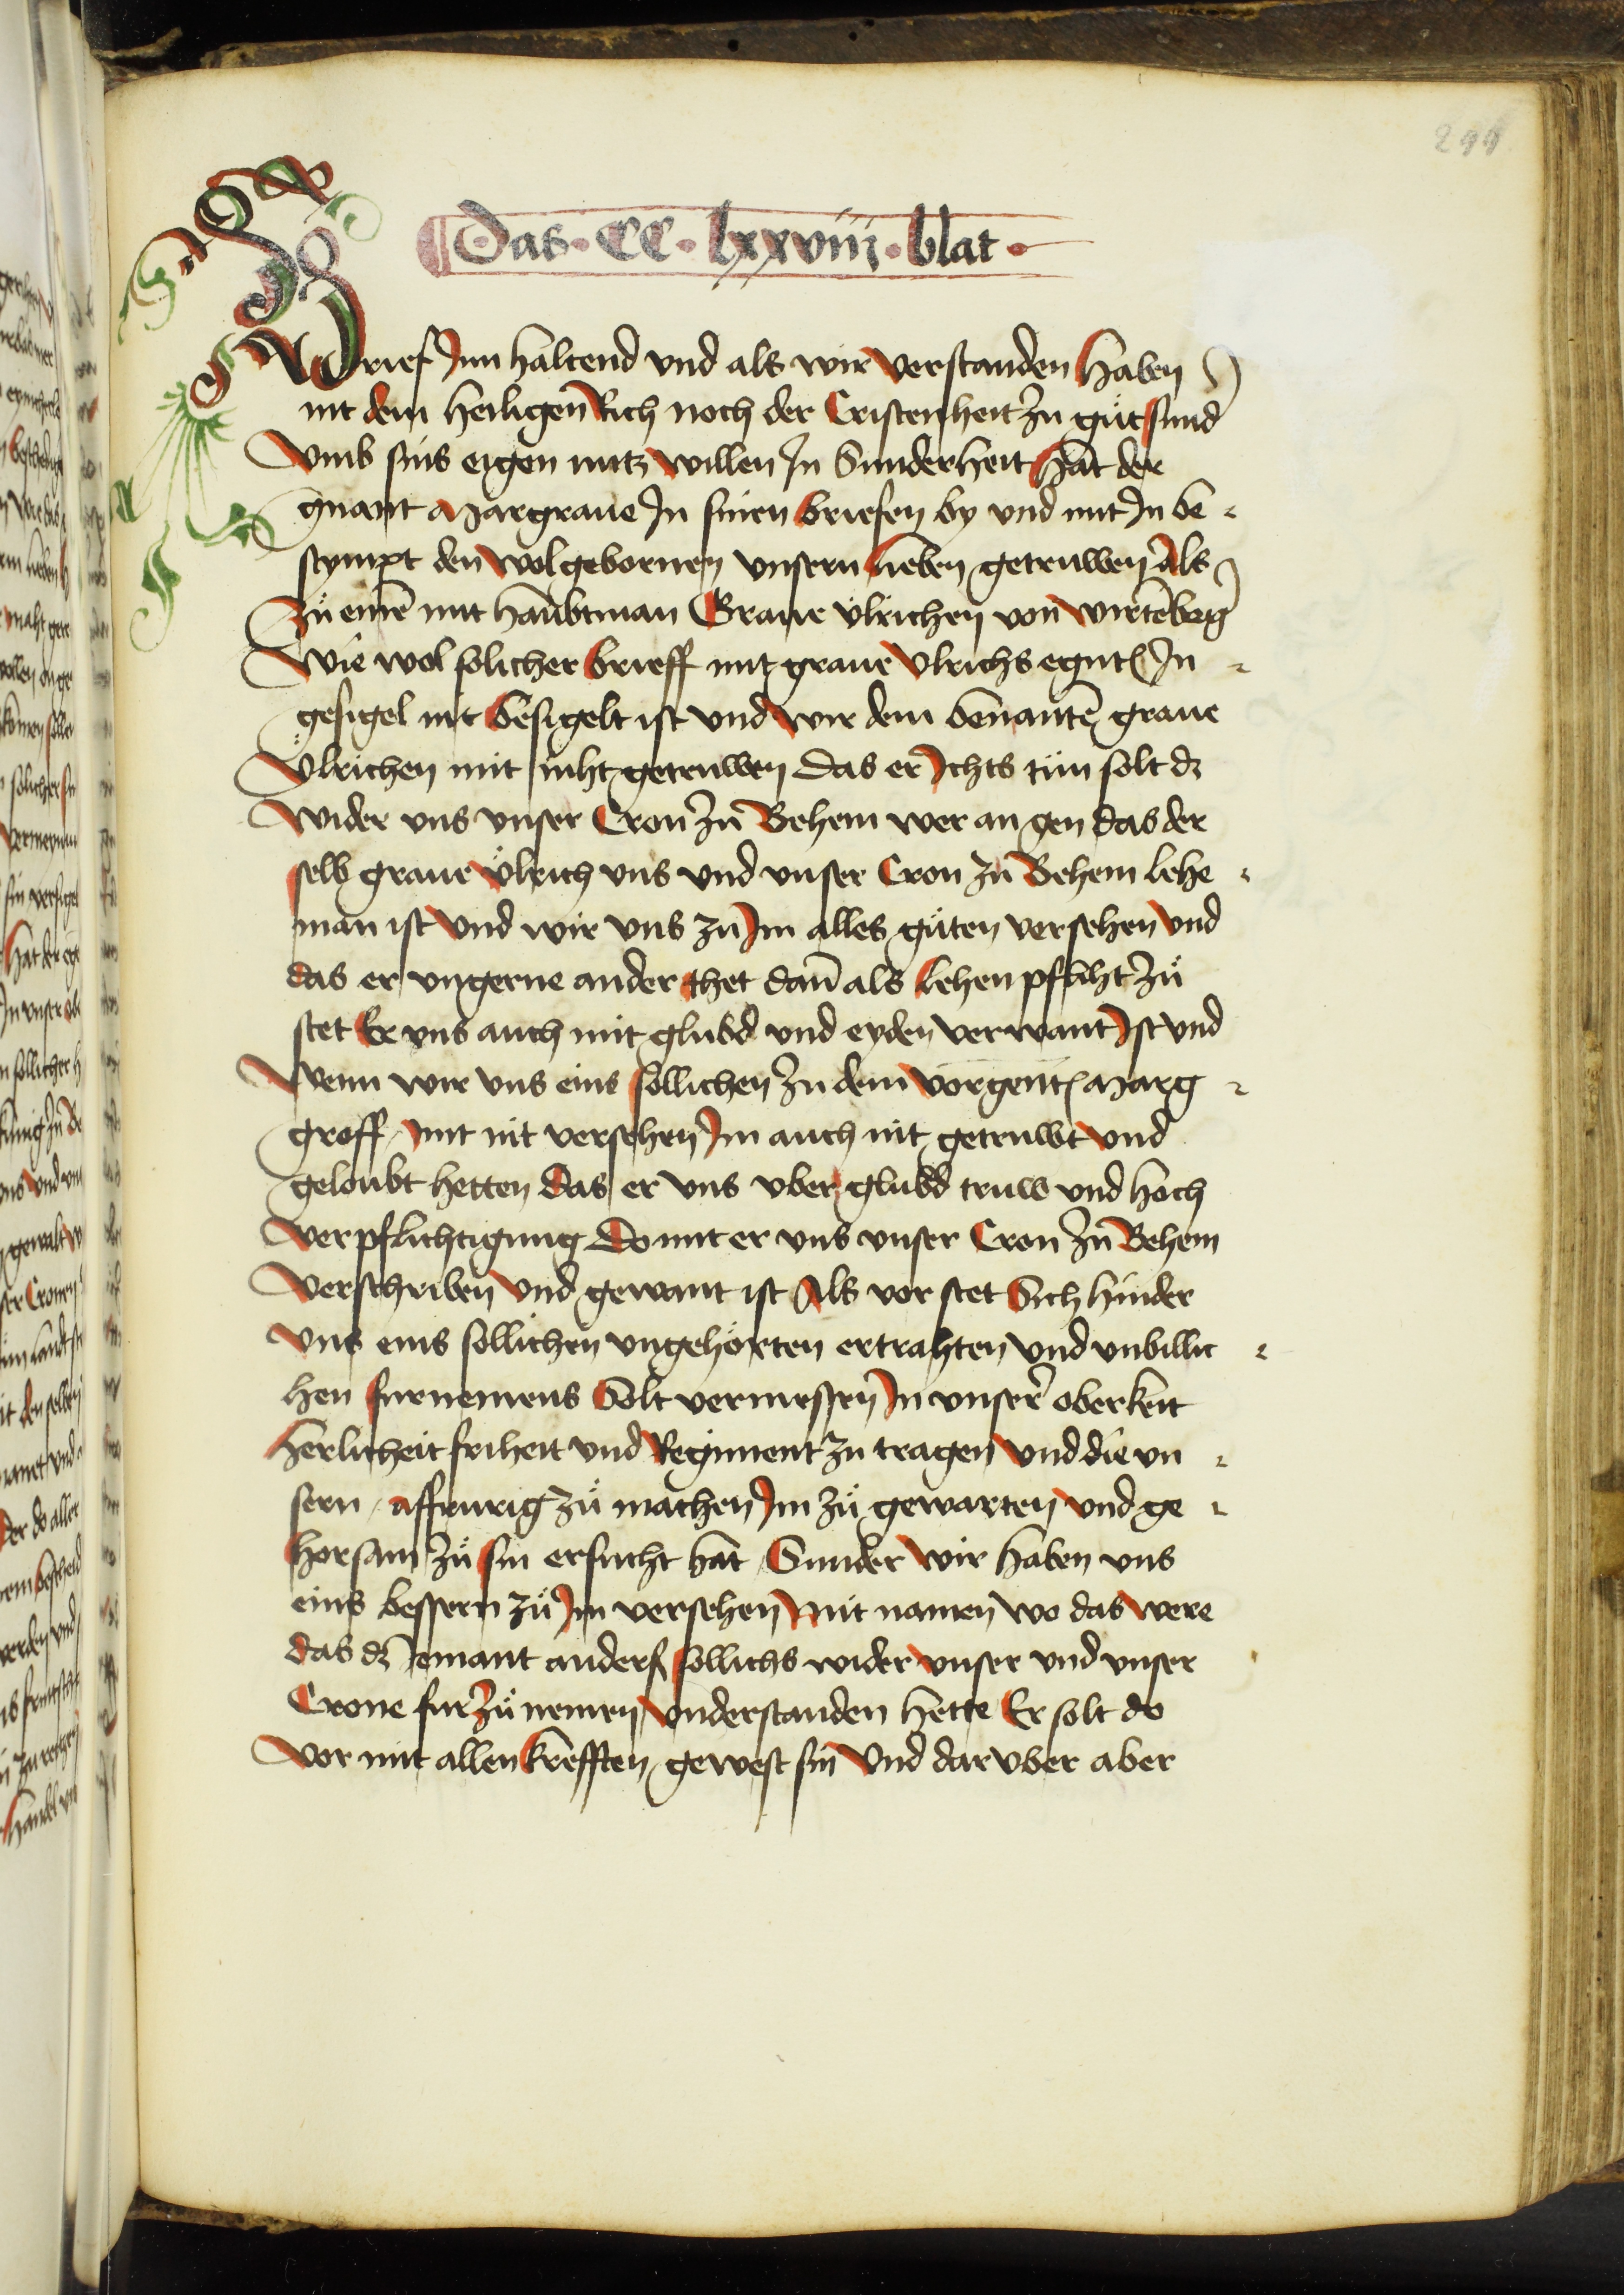 299
Das · CC · lxxviij · blat ·
Brief Inn haltend vnd als wir verstanden haben
nit dem heiligen Rich noch der Cristenheit zu gůt sund
vmb sins eigen nutz willen In Sunderheit hat der
gnant Margraue In sinen briefen by vnd mit In be
stympt den wolgebornen vnsern lieben getruwen Als
Zů eine mit haubtman Graue Vlrichen von wirtēbeg
Wie wol solicher brieff mit graue Vlrichs egnt In
gesigel nit besigelt ist vnd wir dem benantē graue
Vlrichen mit niht getruwen das er Ichts tůn solt dz
wider vns vnser Cron zu Behem wer an gen das der
selb graue Vlrich vns vnd vnser Cron zu Behem lehe
man ist vnd wir vns zu Im alles gůten versehen vnd
das er vngerne ander thet dan als lehen pfliht zů
stet Er vns auch mit glubd vnd eyden verwant Ist vnd
Wenn wir vns eins sollichen zu dem vorgent Marg
groff mit nit versehen Im auch nit getruwt vnd
geloubt hetten das er vns vber glubd truw vnd hoch
verpflichtigung do mit er vns vnser Cron zu Behem
verschriben vnd gewant ist Als vor stet Sich hinder
vns eins sollichen vngehörten ertrahten vnd vnbillic
hen furnemens Solt vermessen In vnser oberkeit
herlicheit friheit vnd Regiment zu tragen vnd die vn
sern affrurig zů machen Im zů gewarten vnd ge
horsam zů sin ersucht hat Sunder wir haben vns
eins bessern zů Im versehen mit namen wo das were
das dz iemant anders sollichs wider vnser vnd vnser
Crone fur zů nemen vnderstanden hette Er solt do
vor mit allen krefften gewest sin vnd dar vber aber